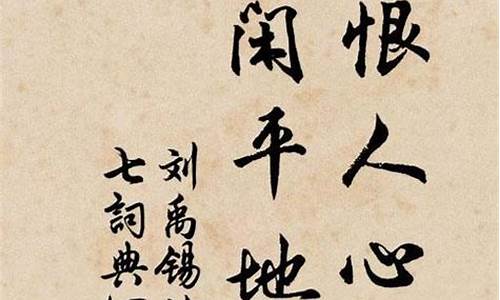 恨人心
闲平地
刘禹锡
七詞典